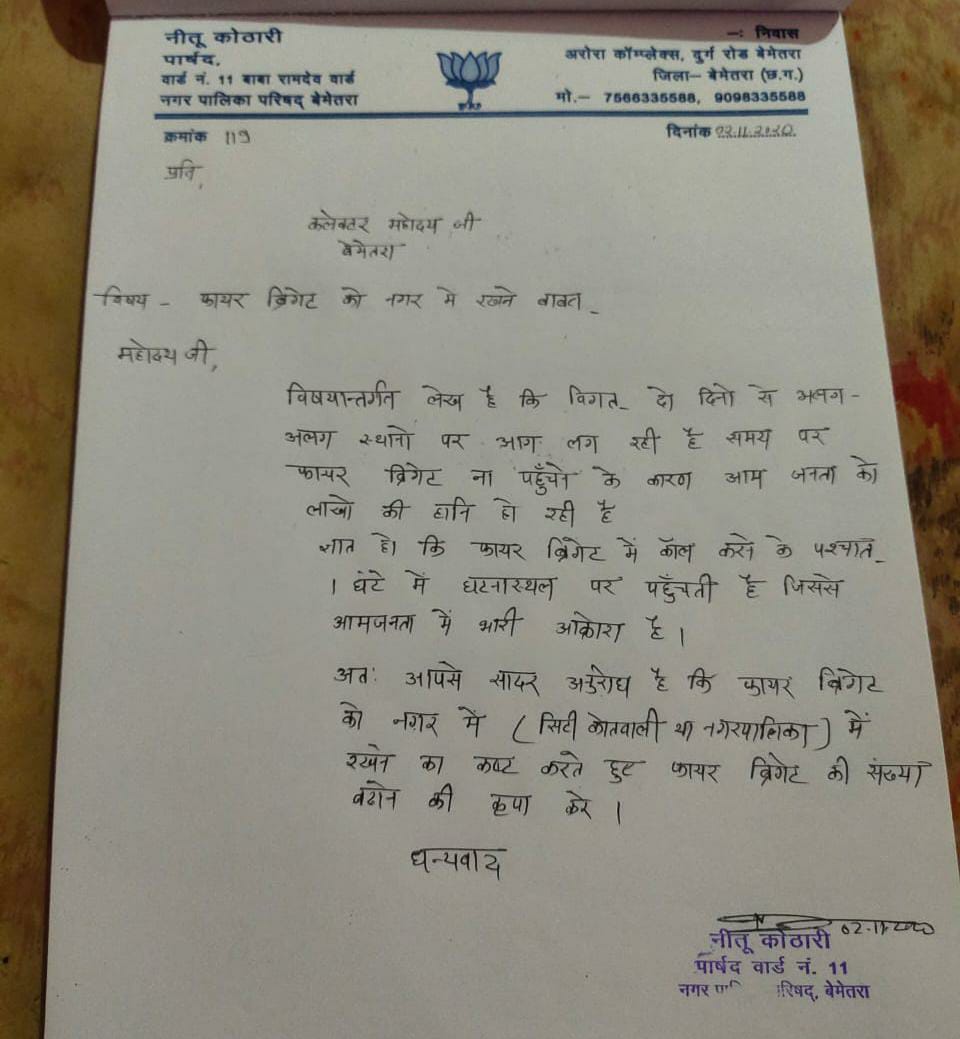 नीतू कोठारी
पार्षद,
वार्ड नं. 11 बाबा रामदेव वार्ड
नगर पालिका परिषद् बेमेतरा
–: निवास
अरोरा कॉम्प्लेक्स, दुर्ग रोड बेमेतरा
जिला– बेमेतरा (छ.ग.)
मो.– 7566335588, 9098335588
क्रमांक 119
दिनांक 02.11.2020.
प्रति,
कलेक्टर महोदय जी
बेमेतरा
विषय - फायर ब्रिगेट को नगर मे रखने बाबत_
महोदय जी,
विषयान्तर्गत लेख है कि विगत_ दो दिनो से अलग -
अलग स्थानो पर आग लग रही है समय पर
फायर ब्रिगेट ना पहुँचने के कारण आम जनता को
लाखो की हानि हो रही है
ज्ञात हो कि फायर ब्रिगेट में कॉल करने के पश्चात_
1 घंटे में घटनास्थल पर पहुँचती है जिससे
आमजनता में भारी आक्रोश है ।
अतः आपसे सादर अनुरोध है कि फायर ब्रिगेट
को नगर में ( सिटी कोतवाली या नगरपालिका ) में
रखने का कष्ट करते हुए फायर ब्रिगेट की संख्या
बढाने की कृपा करे ।
धन्यवाद
02-11-2020
नीतू कोठारी
पार्षद वार्ड नं. 11
नगर परिषद, बेमेतरा